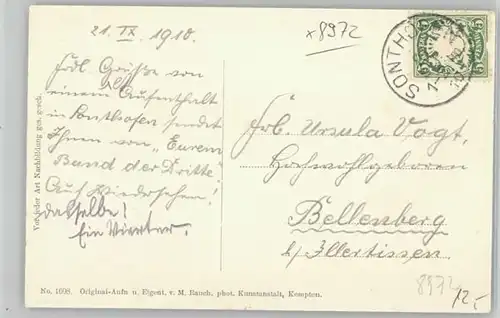 21. IX. 1910.
x 8972
Frdl. Grüße von
einem Aufenthalt
in Sonthofen sendet
Ihnen von „Eurem
Band der Dritte"
Auf Wiedersehen!
dasselbe!
Ein Vierter.
SONTHO
Frl. Ursula Vogt,
Hochwohlgeboren
Bellenberg
b/Illertissen.
Vor jeder Art Nachbildung ges. gesch.
No. 1608. Original-Aufn u. Eigent. v. M. Rauch, phot. Kunstanstalt, Kempten.
8972
12,-